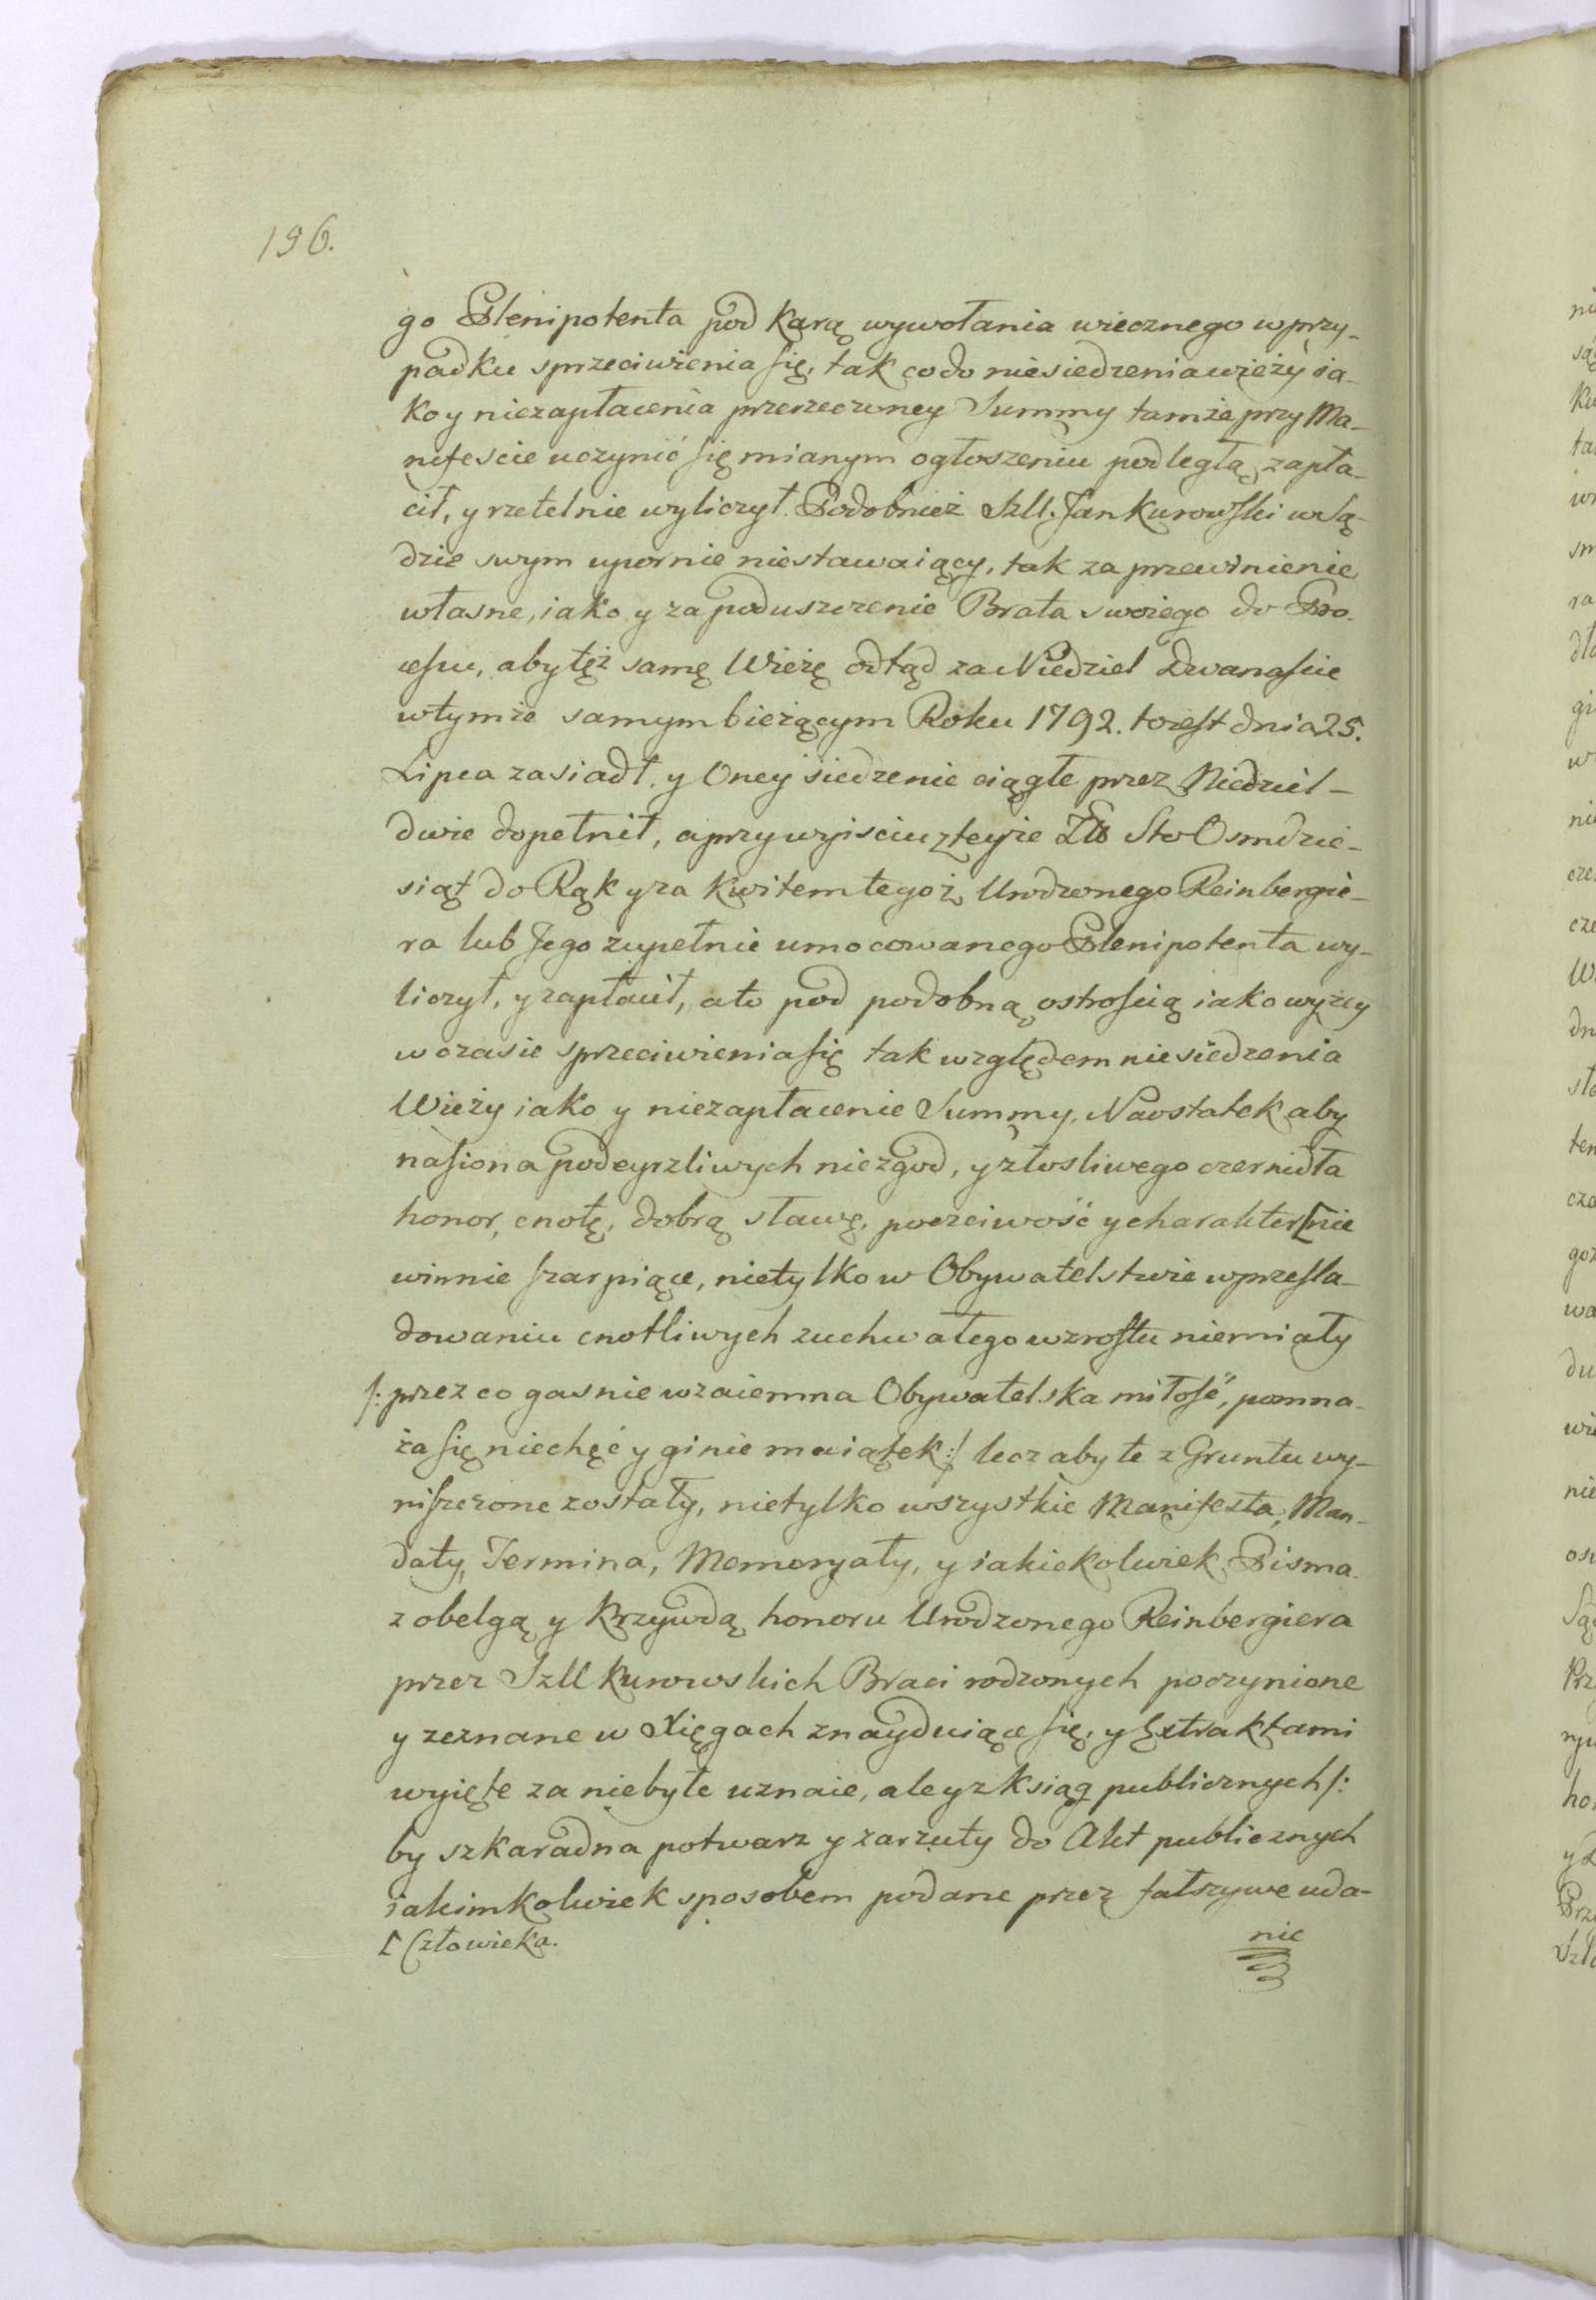 196.
go Plenipotenta pod karą wywołania wiecznego w przy-
padku sprzeciwienia się, tak co do niesiedzenia wieży ia-
ko y niezapłacenia przerzeczoney Summy tamże przy Ma-
nifeście uczynić się mianym ogłoszeniu podległą zapła-
cił, y rzetelnie wyliczył. Podobnież Szll. Jan Kurowski w Są-
dzie swym upornie niestawaiący, tak za przewinienie
własne, iako y za poduszczenie Brata swoiego do Pro-
cessu, aby tęż samę Wieżę odtąd za Niedziel Dwanaście
w tymże samym bieżącym Roku 1792. to iest dnia 25.
Lipca zasiadł, y Oney siedzenie ciągłe przez Niedziel-
dwie dopełnił, a przy wyiściu z teyże Zł Sto Osmdzie-
siąt do Rąk y za kwitem tegoż Urodzonego Reinbergie-
ra lub Jego zupełnie umocowanego Plenipotenta wy-
liczył, y zapłacił, a to pod podobną ostrością iako wyżey
w czasie sprzeciwienia się tak względem niesiedzenia
Wieży iako y niezapłacenie Summy, Naostatek aby
nasiona podeyrzliwych niezgod, y złosliwego czernidła
honor, cnotę, dobrą sławę, poczciwość y charakter [nie
winnie szarpiące, nietylko w Obywatelstwie w przesla-
dowaniu cnotliwych zuchwałego wzrostu niemiały
/: przez co gasnie wzaiemna Obywatelska miłość, pomna-
ża się niechęć y ginie maiątek :/ lecz aby te z Gruntu wy-
niszczone zostały, nietylko wszystkie Manifesta, Man-
daty, Termina, Memoryały, y iakiekolwiek Pisma
z obelgą y krzywdą honoru Urodzonego Reinbergiera
przez Szll Kurowskich Braci rodzonych poczynione
y zeznane w Xięgach znayduiące się, y Extraktami
wyięte za niebyłe uznaie, ale y z ksiąg publicznych /:
by szkaradna potwarz y zarzuty do Akt publicznych
iakimkolwiek sposobem podane przez fałszywe uda-
[ Człowieka.
nie